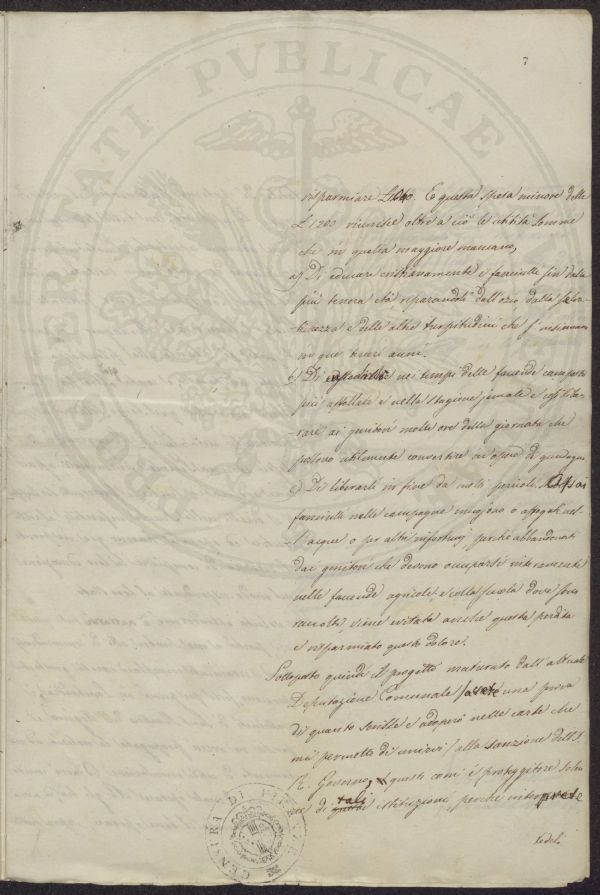 7
risparmiare L 1240. E questa spesa minore delle
L 1200 riunirebbe oltre a ciò le utilità somme
che in quella maggiore mancano,
a) Di educare cristianamente i fanciulli fin dalla
più tenera età riparandoli dall'ozio dalla salva-
-tichezza e delle altre turpitudini che s'insinuano
in que' teneri anni.
b) Di nei tempi delle faccende campestri
più affollate e nella stagione jemale
-rare ai genitori molte ore della giornata che
possono utilmente convertire in opere di guadagno
c) Di liberarli in fine da molti pericoli. Assai
fanciulli nelle campagne muojono o affogati nel-
-l'acque o per altri infortunj perchè abbandonati
dai genitori che devono occuparsi
nelle faccende agricole e colla scuola dove sono
raccolti viene evitata anche questa perdita
e risparmiato questo dolore.
Sottoposto quindi il progetto maturato dall'attuale
Deputazione Comunale avrete una prova
di quanto scrisse e adoperò nelle carte che
mi permetto di unirvi / alla sanzione dell'I.
R. Governo, questi com'è proteggitore solen-
ne di tali istituzioni perchè interprete
fedeli
CARITATI PVBLICAE
CENTRA DI